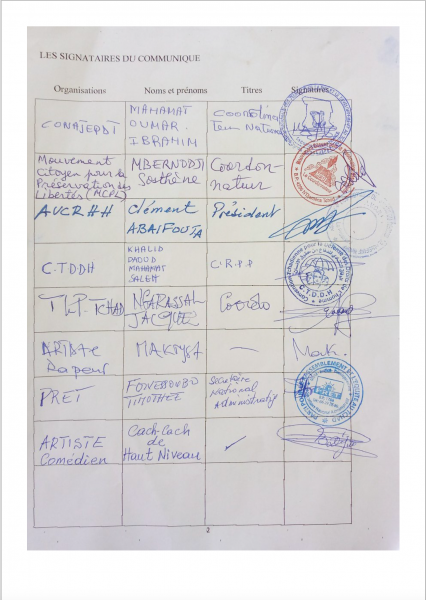 LES SIGNATAIRES DU COMMUNIQUE
Organisations Noms et prénoms Titres Signatures
CONAJEPDT
MAHAMAT
OUMAR
IBRAHIM
Coordina
teur National
Mouvement
Citoyen pour la
Préservation des
Libertés (MCPL)
MBERNODJI
Sosthène
Coordon-
nateur
AVCRHH
Clément
ABAIFOUTA
Président
C.TDDH
KHALID
DAOUD
MAHAMAT
SALEH
C.R.P.P
TLP.TCHAD
NGARASSAL
JACQUES
Coordo
ARTISTE
Rapeur
MAKSYSZ
—
Mak.
PRET
TIMOTHEE
Secrétaire
National
Administratif
ARTISTE
Comédien
Cach-Cach
de
Haut Niveau
C.T.D.D.H
2